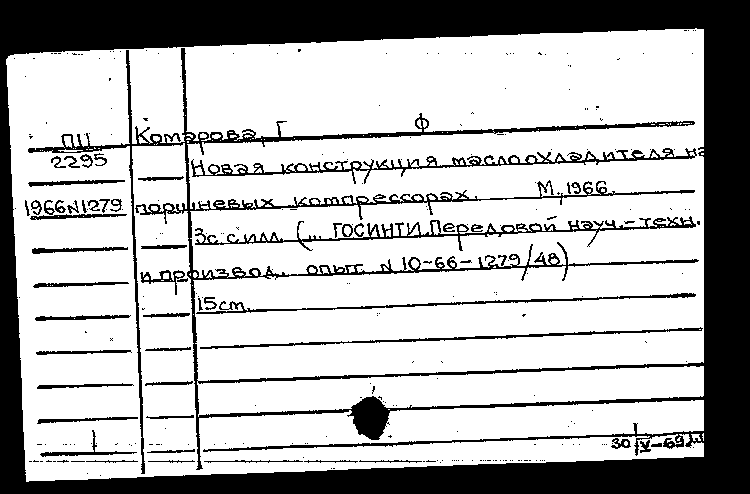 ПЦ Комарова, Г Ф
2295 Новая конструкция маслоохладителя на
1966 N1279 поршневых компрессорах. М., 1966.
3с. с илл. (... ГОСИНТИ. Передовой науч.-техн.
и производ. опыт. N 10-66-1279/48)
15см.
30/IV-69